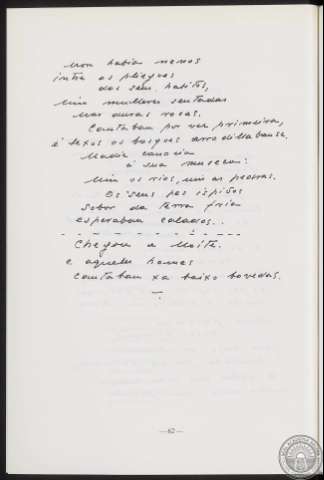 non había menos
intra os pliegues
dos seus habitos,
Unin mulleres sentadas
nas duras rocas.
Cantaban por vez primeira,
é lexos os bosques arrodillabanse,
Nadie conocia
á sua musica:
Unin os rios, unin as pedras.
Os seus pes ispidos
sobor da terra fria
esperaban calados...
Chegou a Noite.
e aqueles homes
cantaban xa baixo bovedas.
—62—